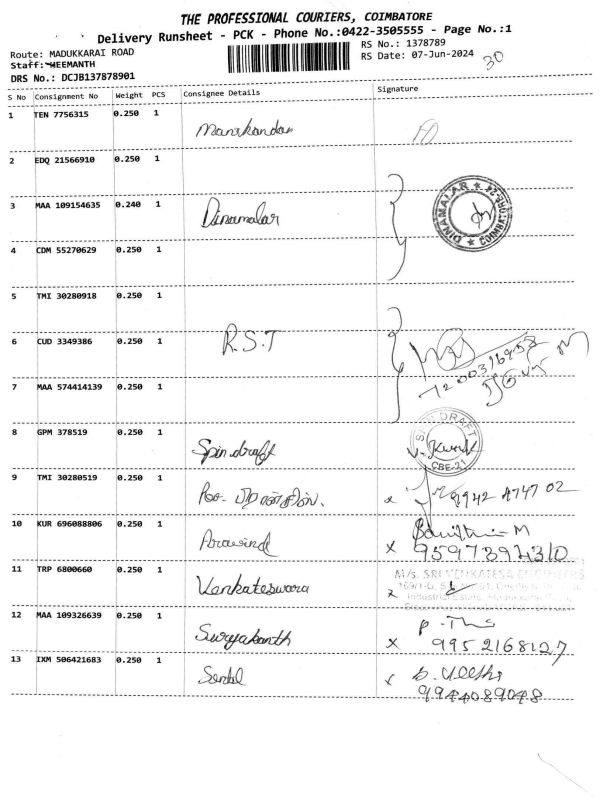 THE PROFESSIONAL COURIERS, COIMBATORE
Delivery Runsheet - PCK - Phone No.:0422-3505555 - Page No.:1
Route: MADUKKARAI ROAD
RS No.: 1378789
Staff: HEEMANTH
RS Date: 07-Jun-2024
30
DRS No.: DCJB137878901
S No Consignment No Weight PCS Consignee Details Signature
1 TEN 7756315 0.250 1 Manikandan
2 EDQ 21566910 0.250 1
3 MAA 109154635 0.240 1 Dinamalar DINAMALAR
4 CDM 55270629 0.250 1
5 TMI 30280918 0.250 1
6 CUD 3349386 0.250 1 R.S.T
7 MAA 574414139 0.250 1
8 GPM 378519 0.250 1 Spin draft SPIN DRAFT CBE-21
9 TMI 30280519 0.250 1 x
10 KUR 696088806 0.250 1 Aravind x
11 TRP 6800660 0.250 1 Venkateswara M/s. SRI VENKATESA
12 MAA 109326639 0.250 1 Suryakanth x 9952168127
13 IXM 506421683 0.250 1 x 9944089048